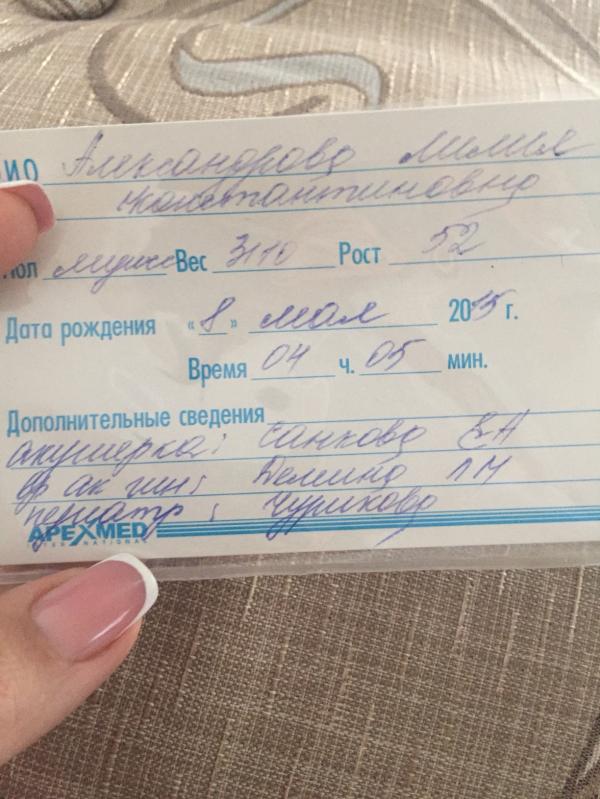 ИО Александрова Лилия
Константиновна
Пол мужс Вес 3110 Рост 52
Дата рождения «8» мая 2015 г.
Время 04 ч. 05 мин.
Дополнительные сведения
акушерка: Санкова ЕА
вр ак гин: Демина ЛМ
педиатр: Чурикова
APEXMED
INTERNATIONAL